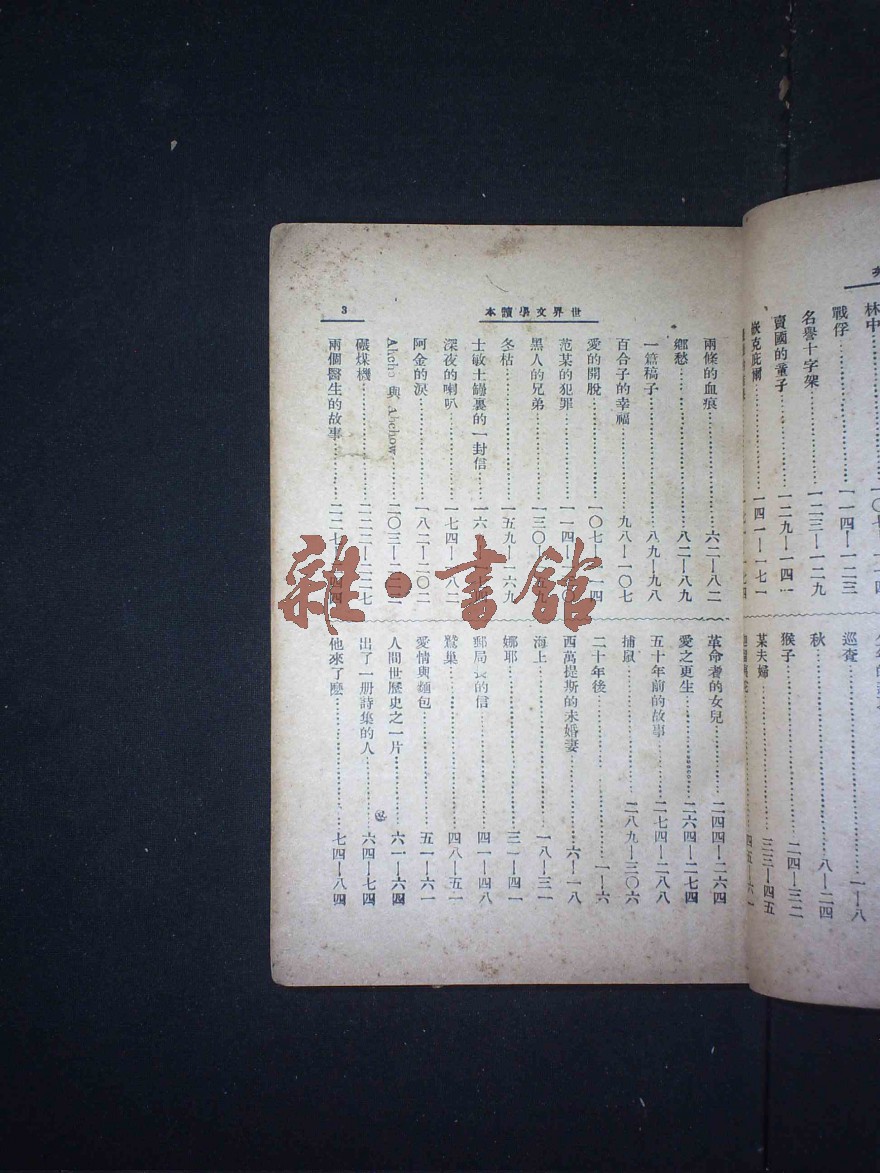 林中
戰俘……一一四—一二三
名譽十字架……一二三—一二九
賣國的童子……一二九—一四一
嵌克庇爾……一四一—一七一
一—八
巡查
秋……八—二四
猴子……二四—三二
某夫婦……三三—四五
四五—六一
世界文學讀本
3
兩條的血痕……六二—八二
鄉愁……八二—八九
一篇稿子……八九—九八
百合子的幸福……九八—一〇七
愛的開脫……一〇七—一一四
范某的犯罪……一一四—
黑人的兄弟……一三〇—
冬枯……一五九—一六九
士敏土罎裏的一封信
深夜的喇叭……一七四—一八二
阿金的淚……一八二—二〇二
Ahcho 與 Ahchow……二〇三—
碾煤機……二二二—二二七
兩個醫生的故事……二二七—二四四
革命者的女兒……二四四—二六四
愛之更生……二六四—二七四
五十年前的故事……二七四—二八八
捕鼠……二八九—三〇六
二十年後……一—六
西萬提斯的未婚妻……六—一八
海上……一八—三一
娜耶……三一—四一
郵局長的信……四一—四八
鷲巢……四八—五一
愛情與麵包……五一—六一
人間世歷史之一片……六一—六四
出了一册詩集的人……六四—七四
他來了麼……七四—八四
雜·書館